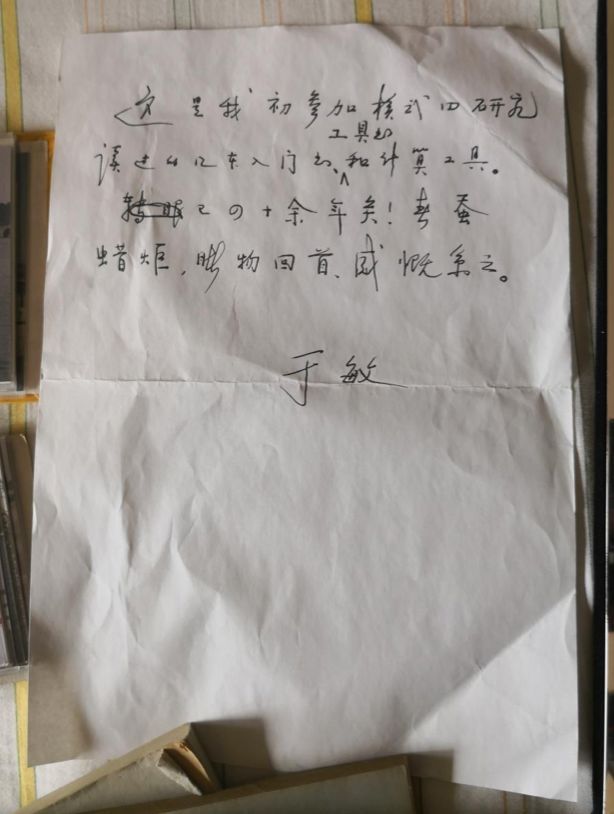 这是我初参加模式四研究
工具书
读过的几本入门书,和计算工具。
转眼已四十余年矣!春蚕
蜡炬,睹物回首,感慨系之。
于敏